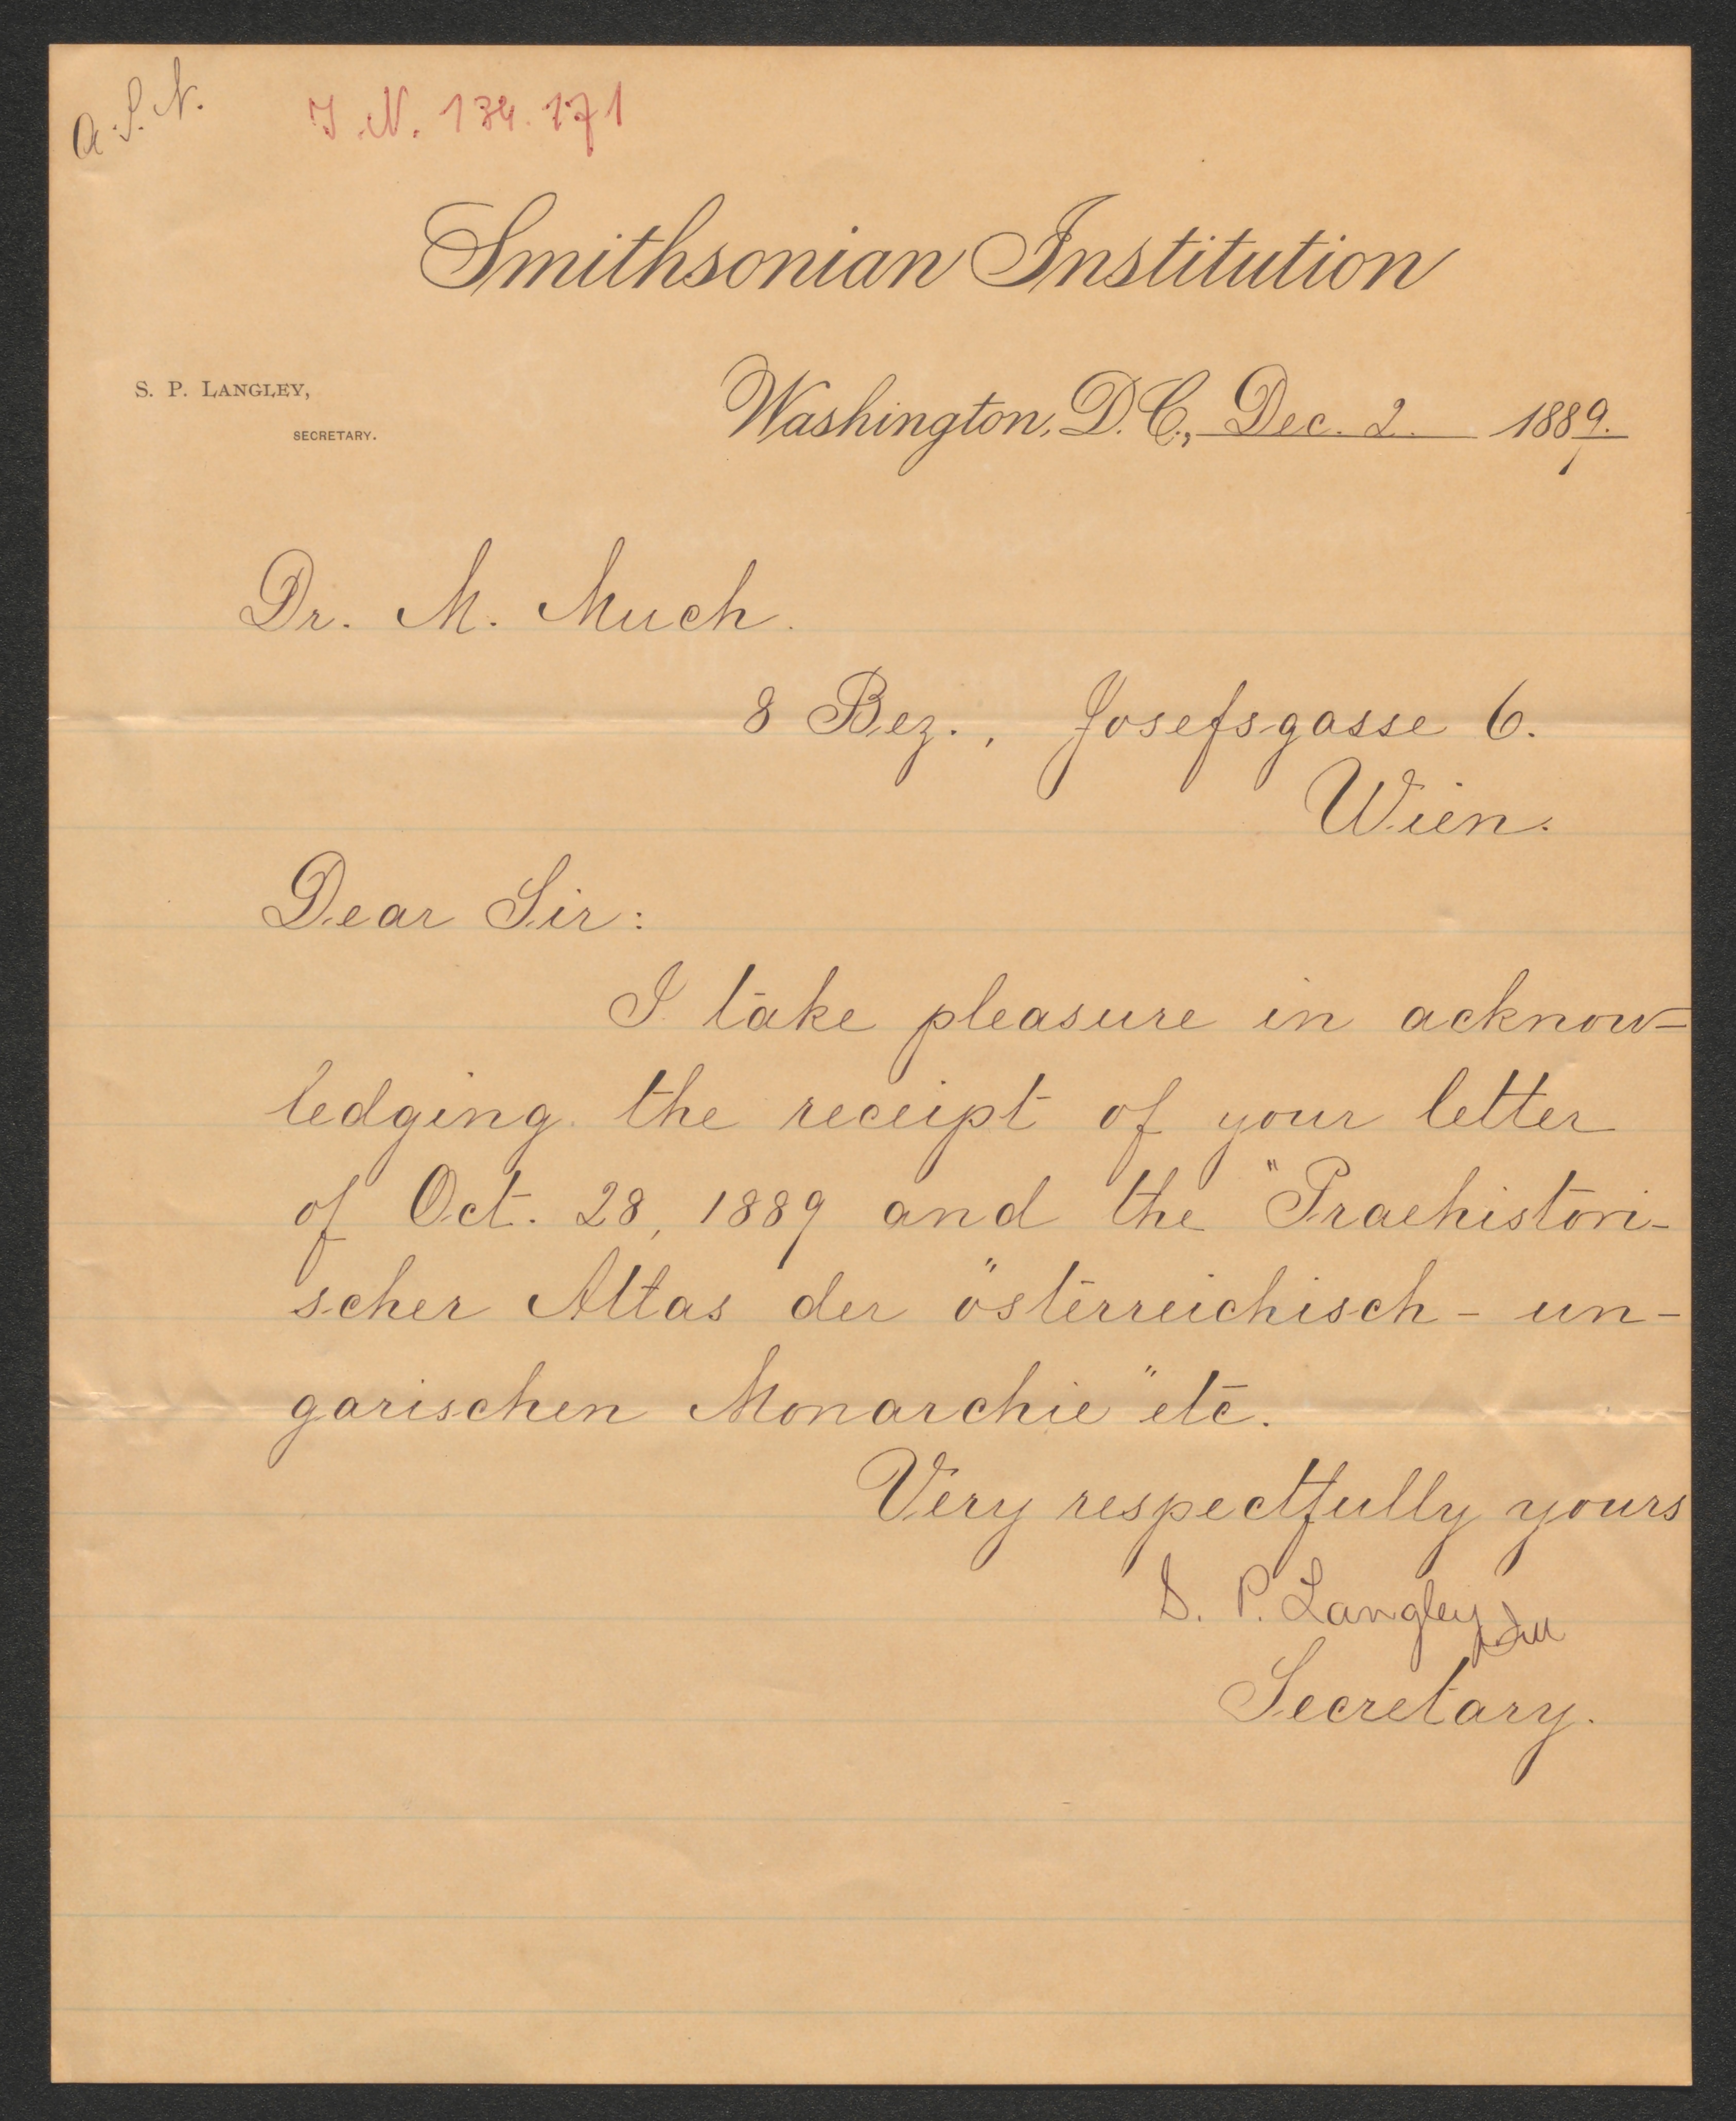 a. S. N.
J. N. 134.171
Smithsonian Institution
S. P. LANGLEY,
SECRETARY.
Washington, D.C., Dec. 2. 1889.
Dr. M. Much.
8 Bez., Josefsgasse 6.
Wien.
Dear Sir:
I take pleasure in acknow=
ledging the receipt of your letter
of Oct. 28, 1889 and the "Praehistori-
scher Atlas der österreichisch-un-
garischen Monarchie" etc.
Very respectfully yours
S. P. Langley
Secretary.